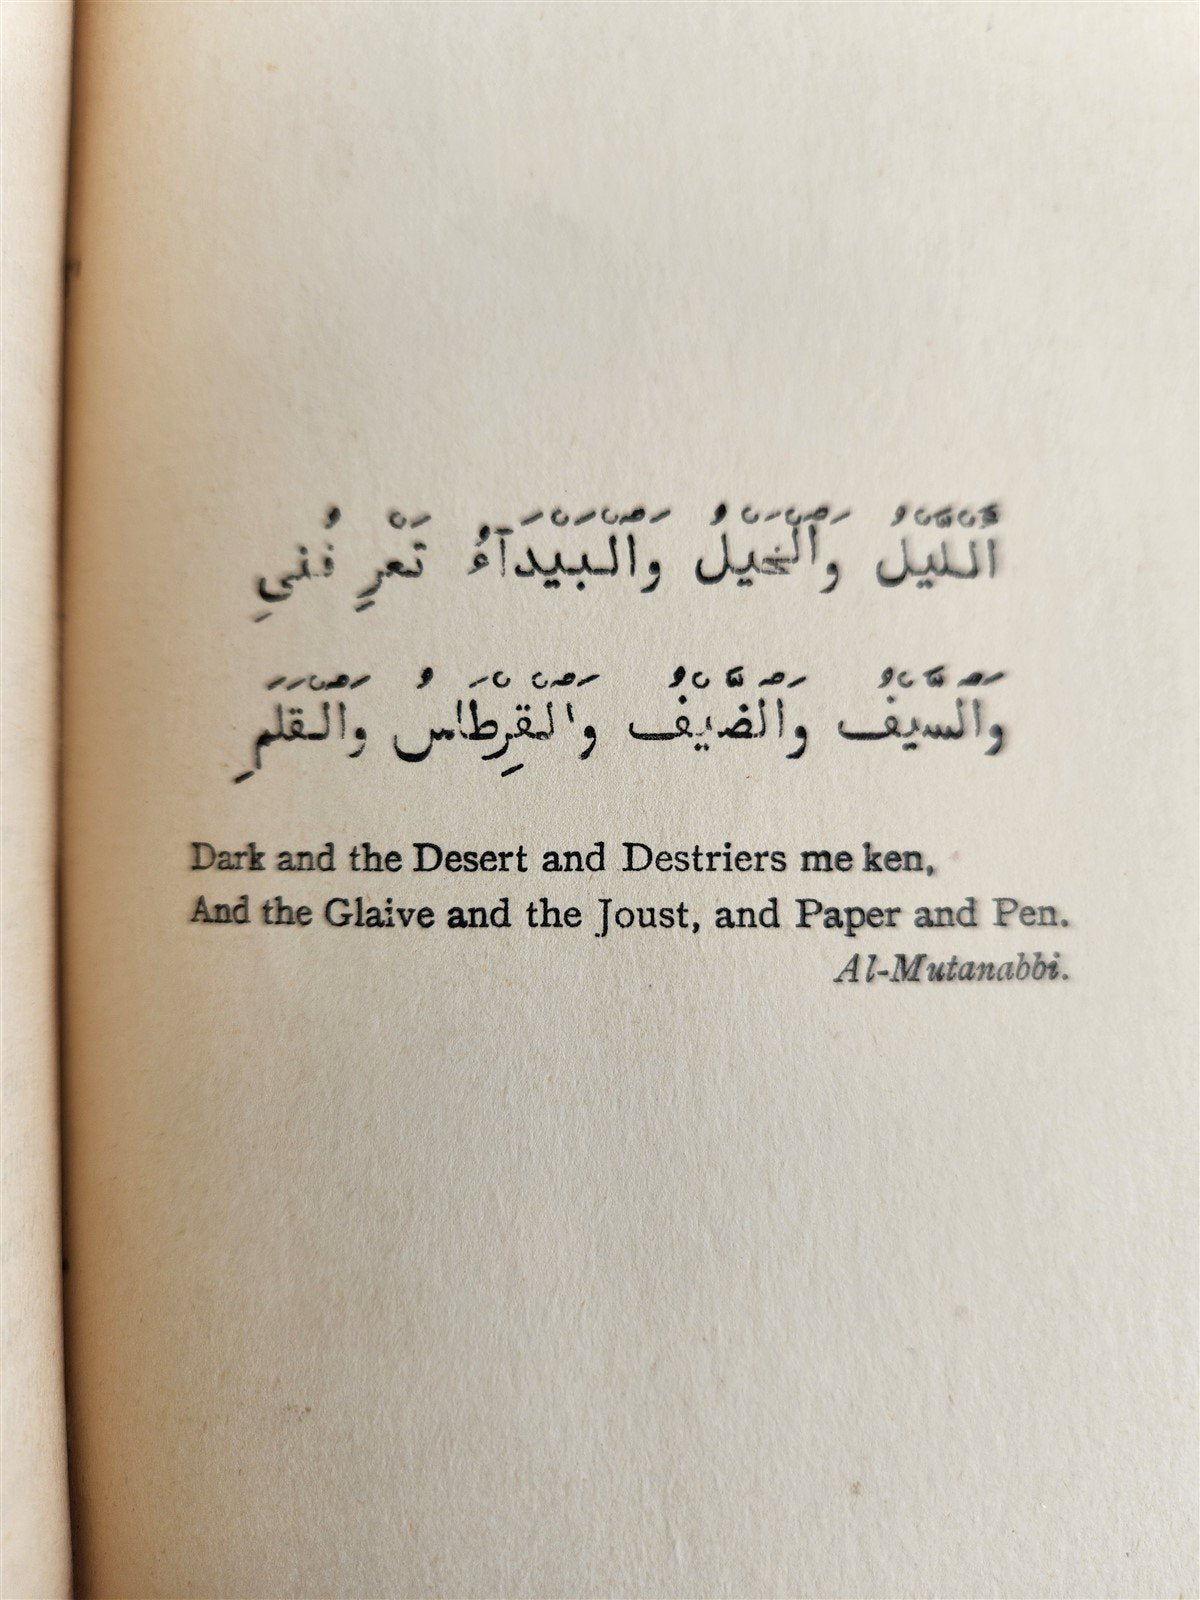 اَللَّيْلُ وَالْخَيْلُ وَالْبَيْدَآءُ تَعْرِ فُنيِ
وَالسَّيْفُ وَالضَّيْفُ وَالْقِرْطَاسُ وَالْقَلَمِ
Dark and the Desert and Destriers me ken,
And the Glaive and the Joust, and Paper and Pen.
Al-Mutanabbi.